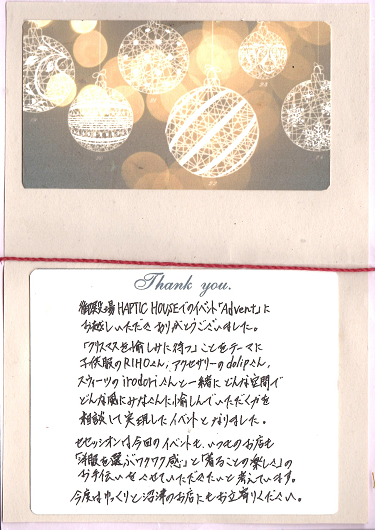 Thank you.
御殿場 HAPTIC HOUSEでのイベント「Advent」に
お越しいただきありがとうございました。
「クリスマスを愉しみに待つ」ことをテーマに
子供服のRIHOさん、アクセサリーのdolipさん、
スウィーツのirodoriさんと一緒に どんな空間で
どんな風にみなさんに愉しんでいただくかを
相談して実現したイベントとなりました。
セセッションでは今回のイベントも、いつものお店も
「洋服を選ぶワクワク感」と「着ることの楽しさ」の
お手伝いをさせていただきたいと考えています。
今度はゆっくりと沼津のお店にもお立寄りください。